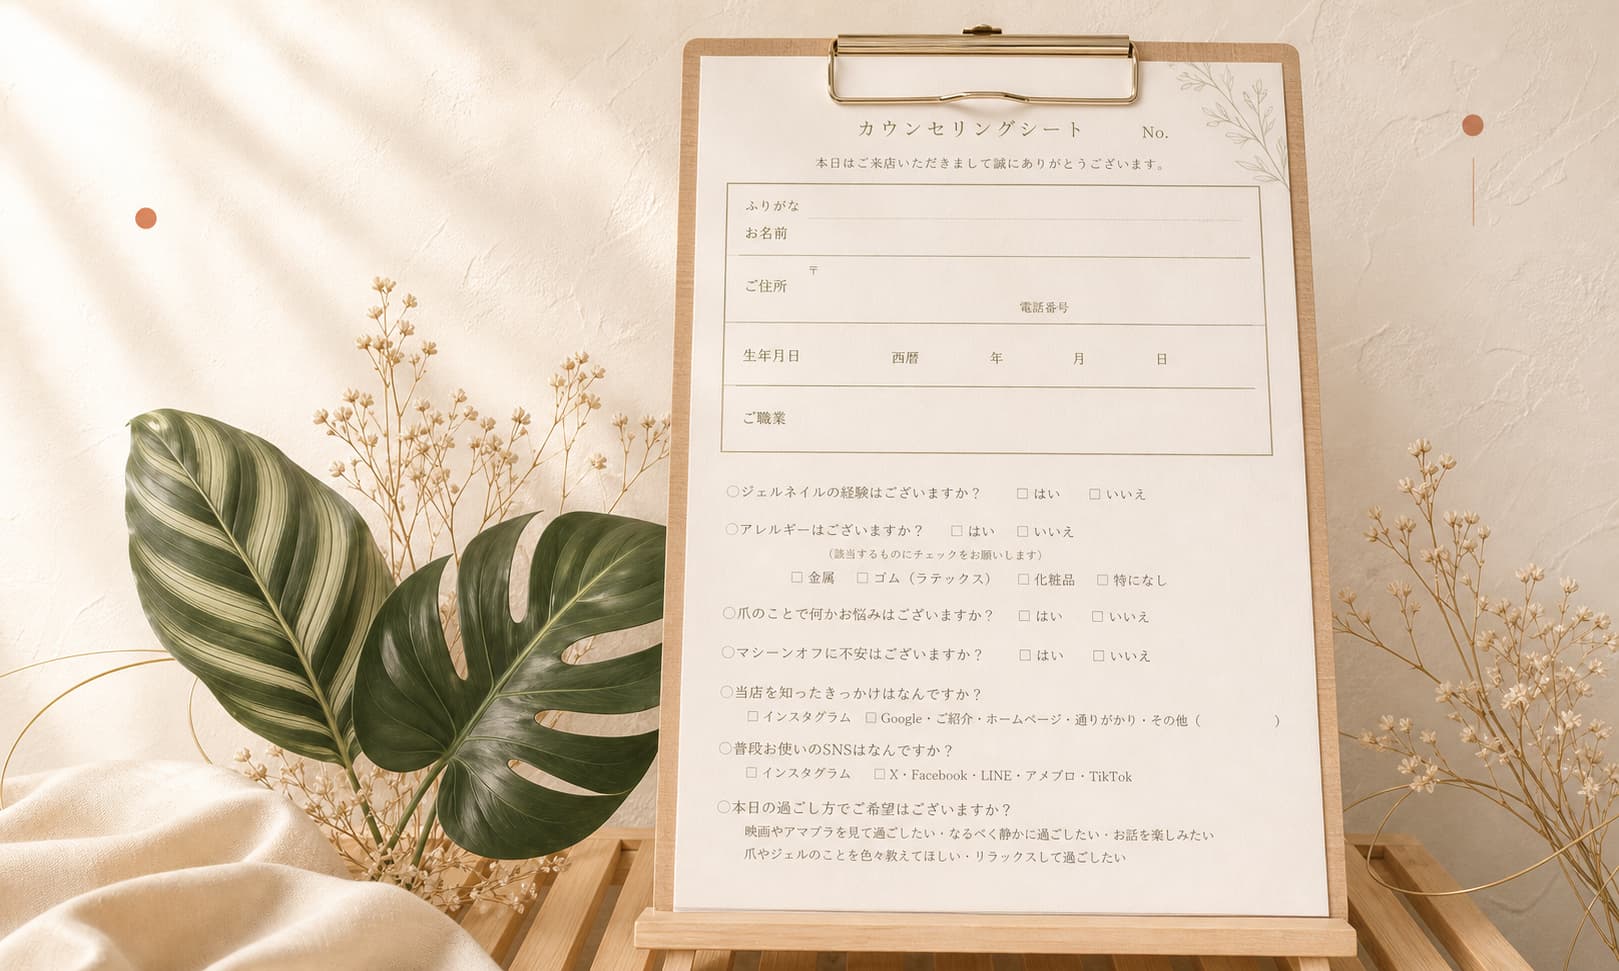 カウンセリングシート No.
本日はご来店いただきまして誠にありがとうございます。
ふりがな
お名前
〒
ご住所
電話番号
生年月日 西暦 年 月 日
ご職業
〇ジェルネイルの経験はございますか？ □ はい □ いいえ
〇アレルギーはございますか？ □ はい □ いいえ
（該当するものにチェックをお願いします）
□ 金属 □ ゴム（ラテックス） □ 化粧品 □ 特になし
〇爪のことで何かお悩みはございますか？ □ はい □ いいえ
〇マシーンオフに不安はございますか？ □ はい □ いいえ
〇当店を知ったきっかけはなんですか？
□ インスタグラム □ Google・ご紹介・ホームページ・通りがかり・その他（ ）
〇普段お使いのSNSはなんですか？
□ インスタグラム □ X・Facebook・LINE・アメブロ・TikTok
〇本日の過ごし方でご希望はございますか？
映画やアマプラを見て過ごしたい・なるべく静かに過ごしたい・お話を楽しみたい
爪やジェルのことを色々教えてほしい・リラックスして過ごしたい